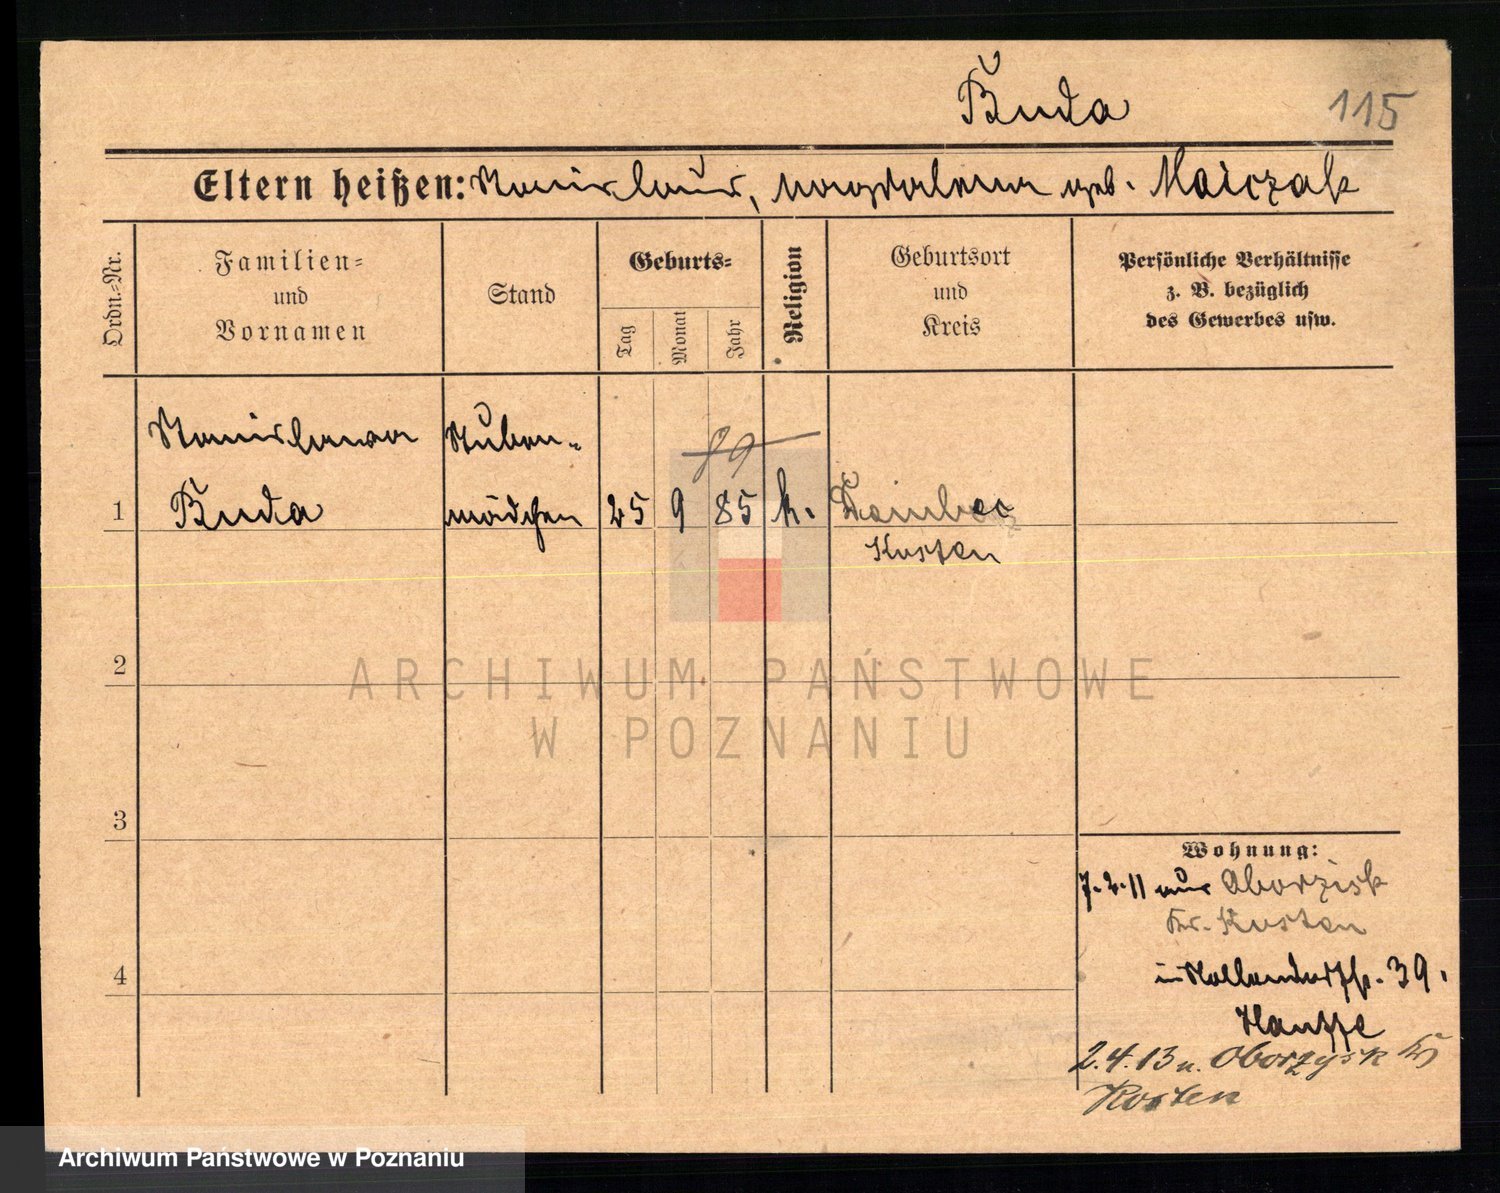 Buda
115
Eltern heißen: Stanislaus, Magdalena geb. Maiczak
Ordn.-Nr.
Familien-
und
Vornamen
Stand
Geburts-
Tag
Monat
Jahr
Religion
Geburtsort
und
Kreis
Persönliche Verhältnisse
z. B. bezüglich
des Gewerbes usw.
Stanislawa Stuben-
89
1 Buda mädchen 25 9 85 k.
Kosten
2
ARCHIWUM PAŃSTWOWE
W POZNANIU
3
Wohnung:
7.2.11 aus Oborzisk
Kr. Kosten
in Nollendorffstr. 39.
2.4.13 n. Oborzysk Kr
Kosten
4
Archiwum Państwowe w Poznaniu